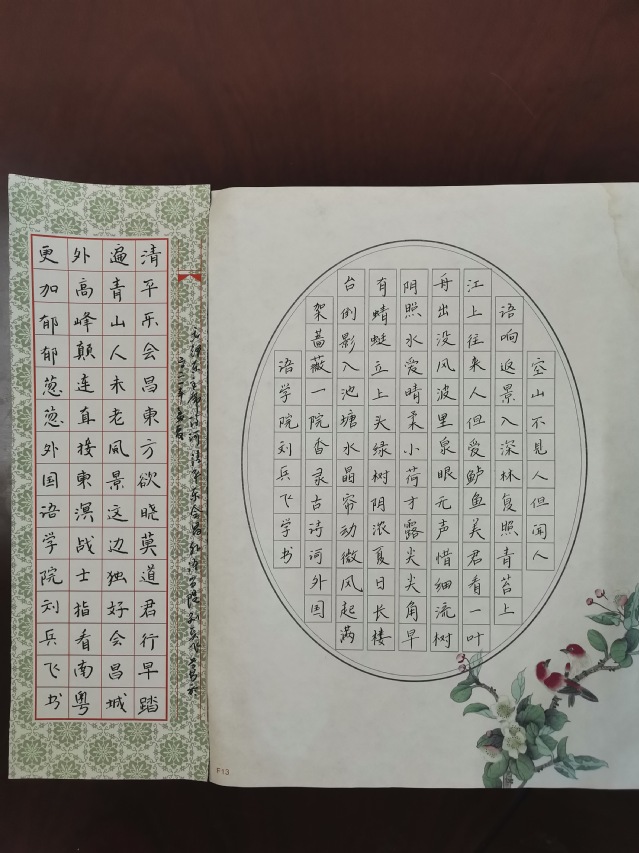 清平乐会昌東方欲晓莫道君行早踏
遍青山人未老风景这边独好会昌城
外高峰颠连直接東溟战士指看南粤
更加郁郁葱葱外国语学院刘兵飞书
空山不见人但闻人
语响返景入深林复照青苔上
江上往来人但爱鲈鱼美君看一叶
舟出没风波里泉眼无声惜细流树
阴照水爱晴柔小荷才露尖尖角早
有蜻蜓立上头绿树阴浓夏日长楼
台倒影入池塘水晶帘动微风起满
架蔷薇一院香录古诗词外国
语学院刘兵飞学书
F13